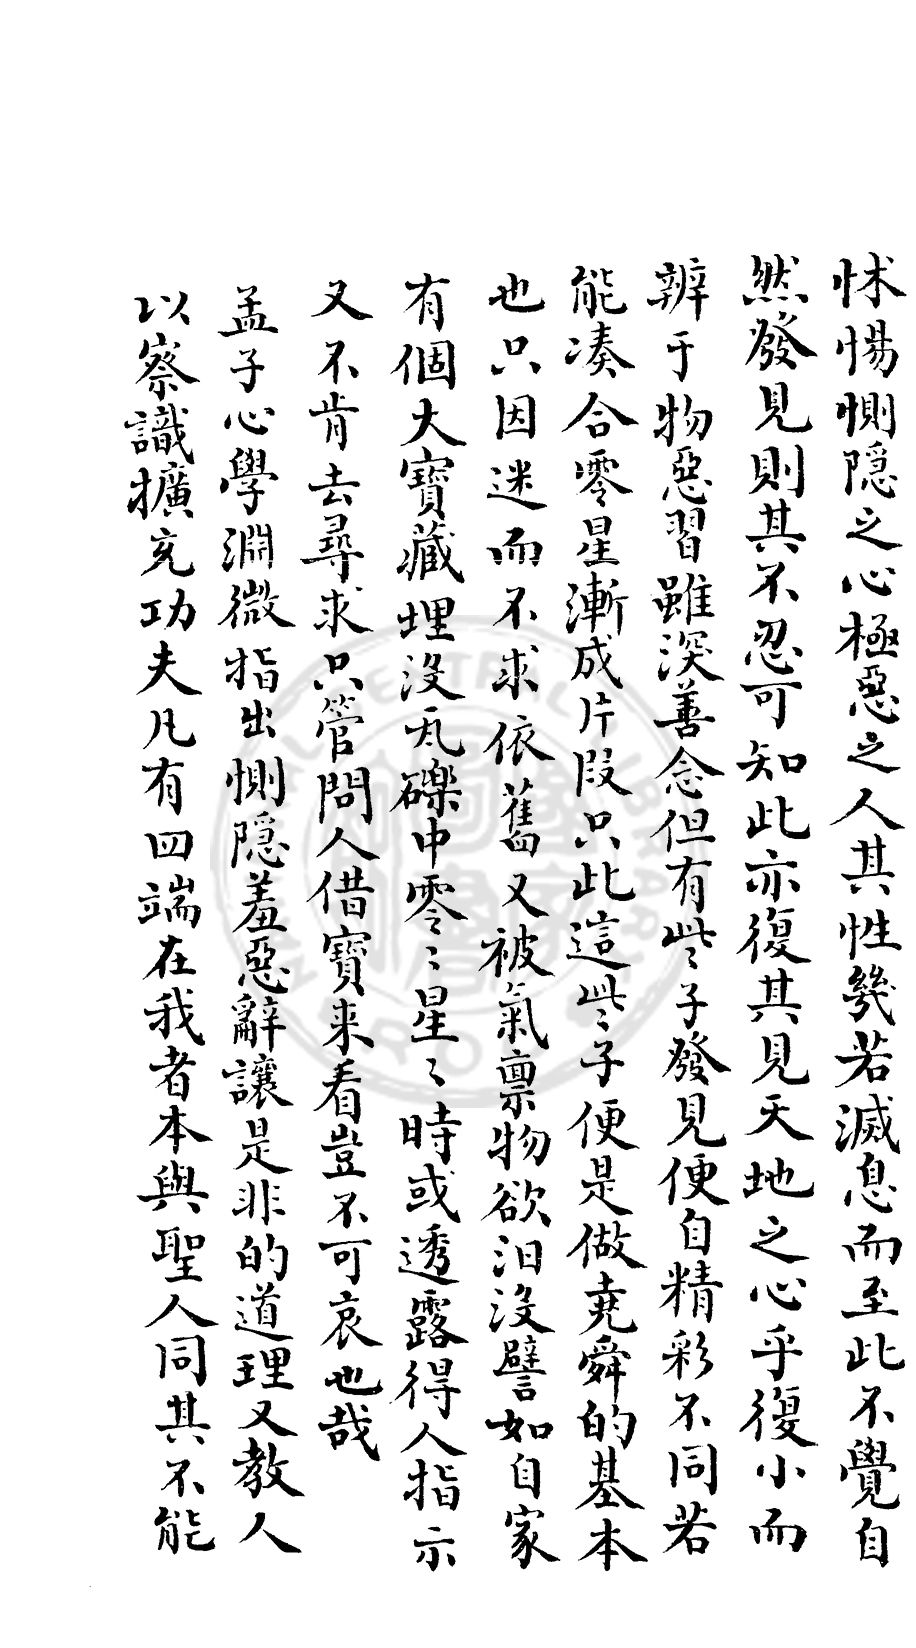 怵惕惻隱之心極惡之人其性幾若滅息而至此不覺自
然發見則其不忍可知此亦復其見天地之心乎復小而
辨于物惡習雖深善念但有些子發見便自精彩不同若
能湊合零星漸成片段只此這些子便是做堯舜的基本
也只因迷而不求依舊又被氣禀物欲汩没譬如自家
有個大寶藏埋没瓦礫中零〻星〻時或透露得人指示
又不肯去尋求只管問人借寶来看豈不可哀也哉
孟子心學淵微指出惻隱羞惡辭讓是非的道理又教人
以察識擴充功夫凡有四端在我者本與聖人同其不能